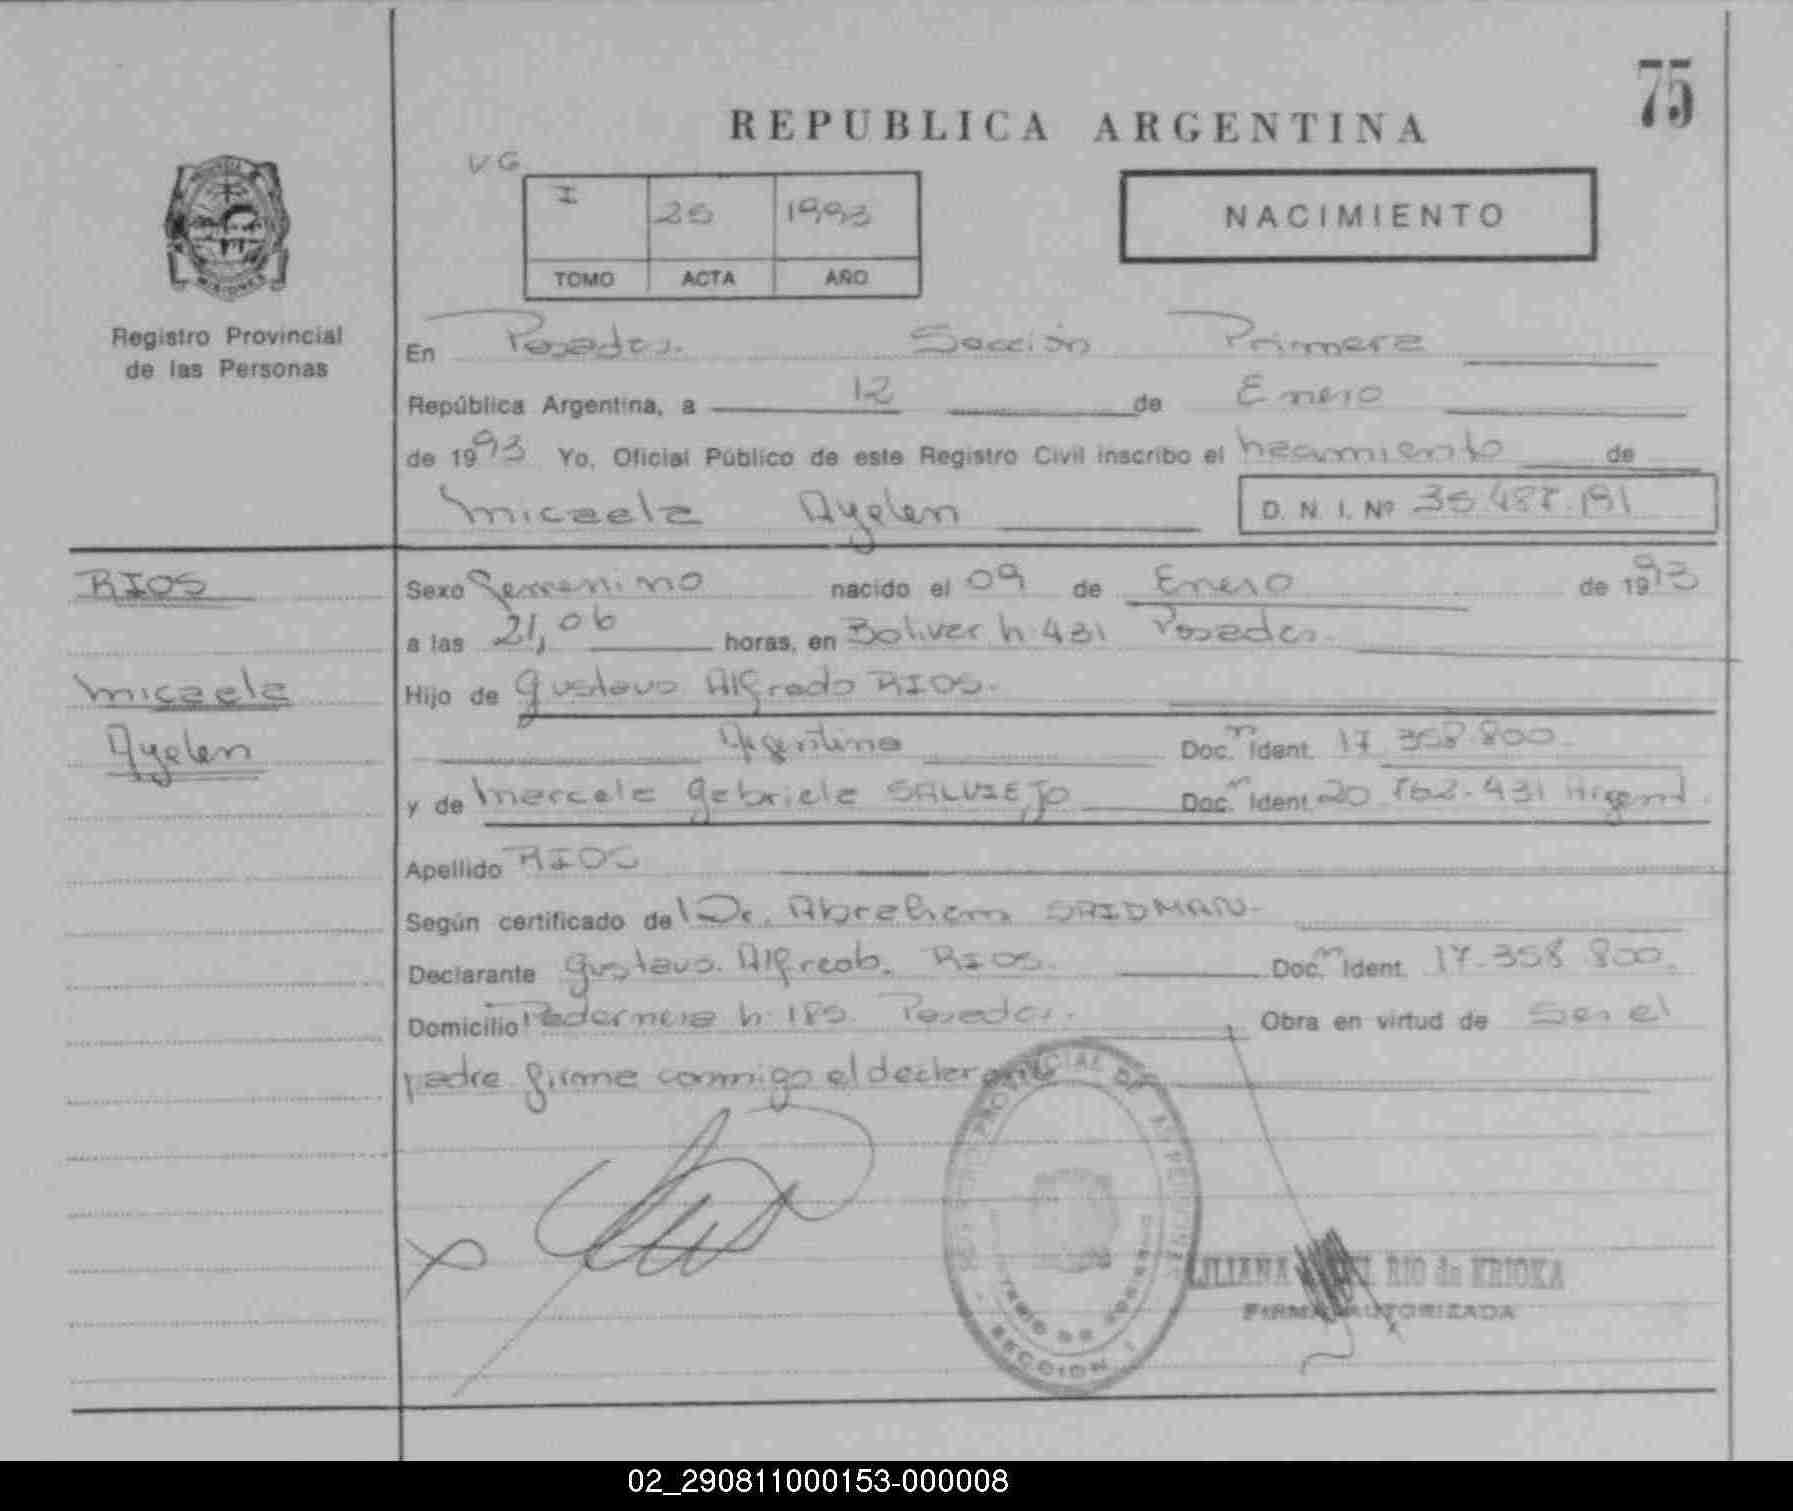 75
REPUBLICA ARGENTINA
VG
I 25 1993
TOMO ACTA AÑO
NACIMIENTO
MISIONES
Registro Provincial
de las Personas
En Posadas. Sección Primera
República Argentina, a 12 de Enero
de 1993 Yo, Oficial Público de este Registro Civil inscribo el nacimiento de
Micaela Ayelen D. N. I. Nº 35.487.191
RIOS
Micaela
Ayelen
Sexo Femenino nacido el 09 de Enero de 1993
a las 21,06 horas, en Bolivar n. 431 Posadas.
Hijo de Gustavo Alfredo RIOS.
Argentino Doc. Ident. 17.358.800.
y de Marcela Gabriela Doc. Ident. 20 431 Argent.
Apellido RIOS
Según certificado del Dr. Abraham
Declarante Gustavo. Alfredo. RIOS. Doc. Ident. 17.358.800.
Domicilio Pedernera n. 185. Posadas. Obra en virtud de Ser el
padre firma conmigo el declarante
REGISTRO PROVINCIAL DE LAS PERSONAS
SECCION 1
LILIANA RIO de KRIOKA
FIRMA AUTORIZADA
02_290811000153-000008